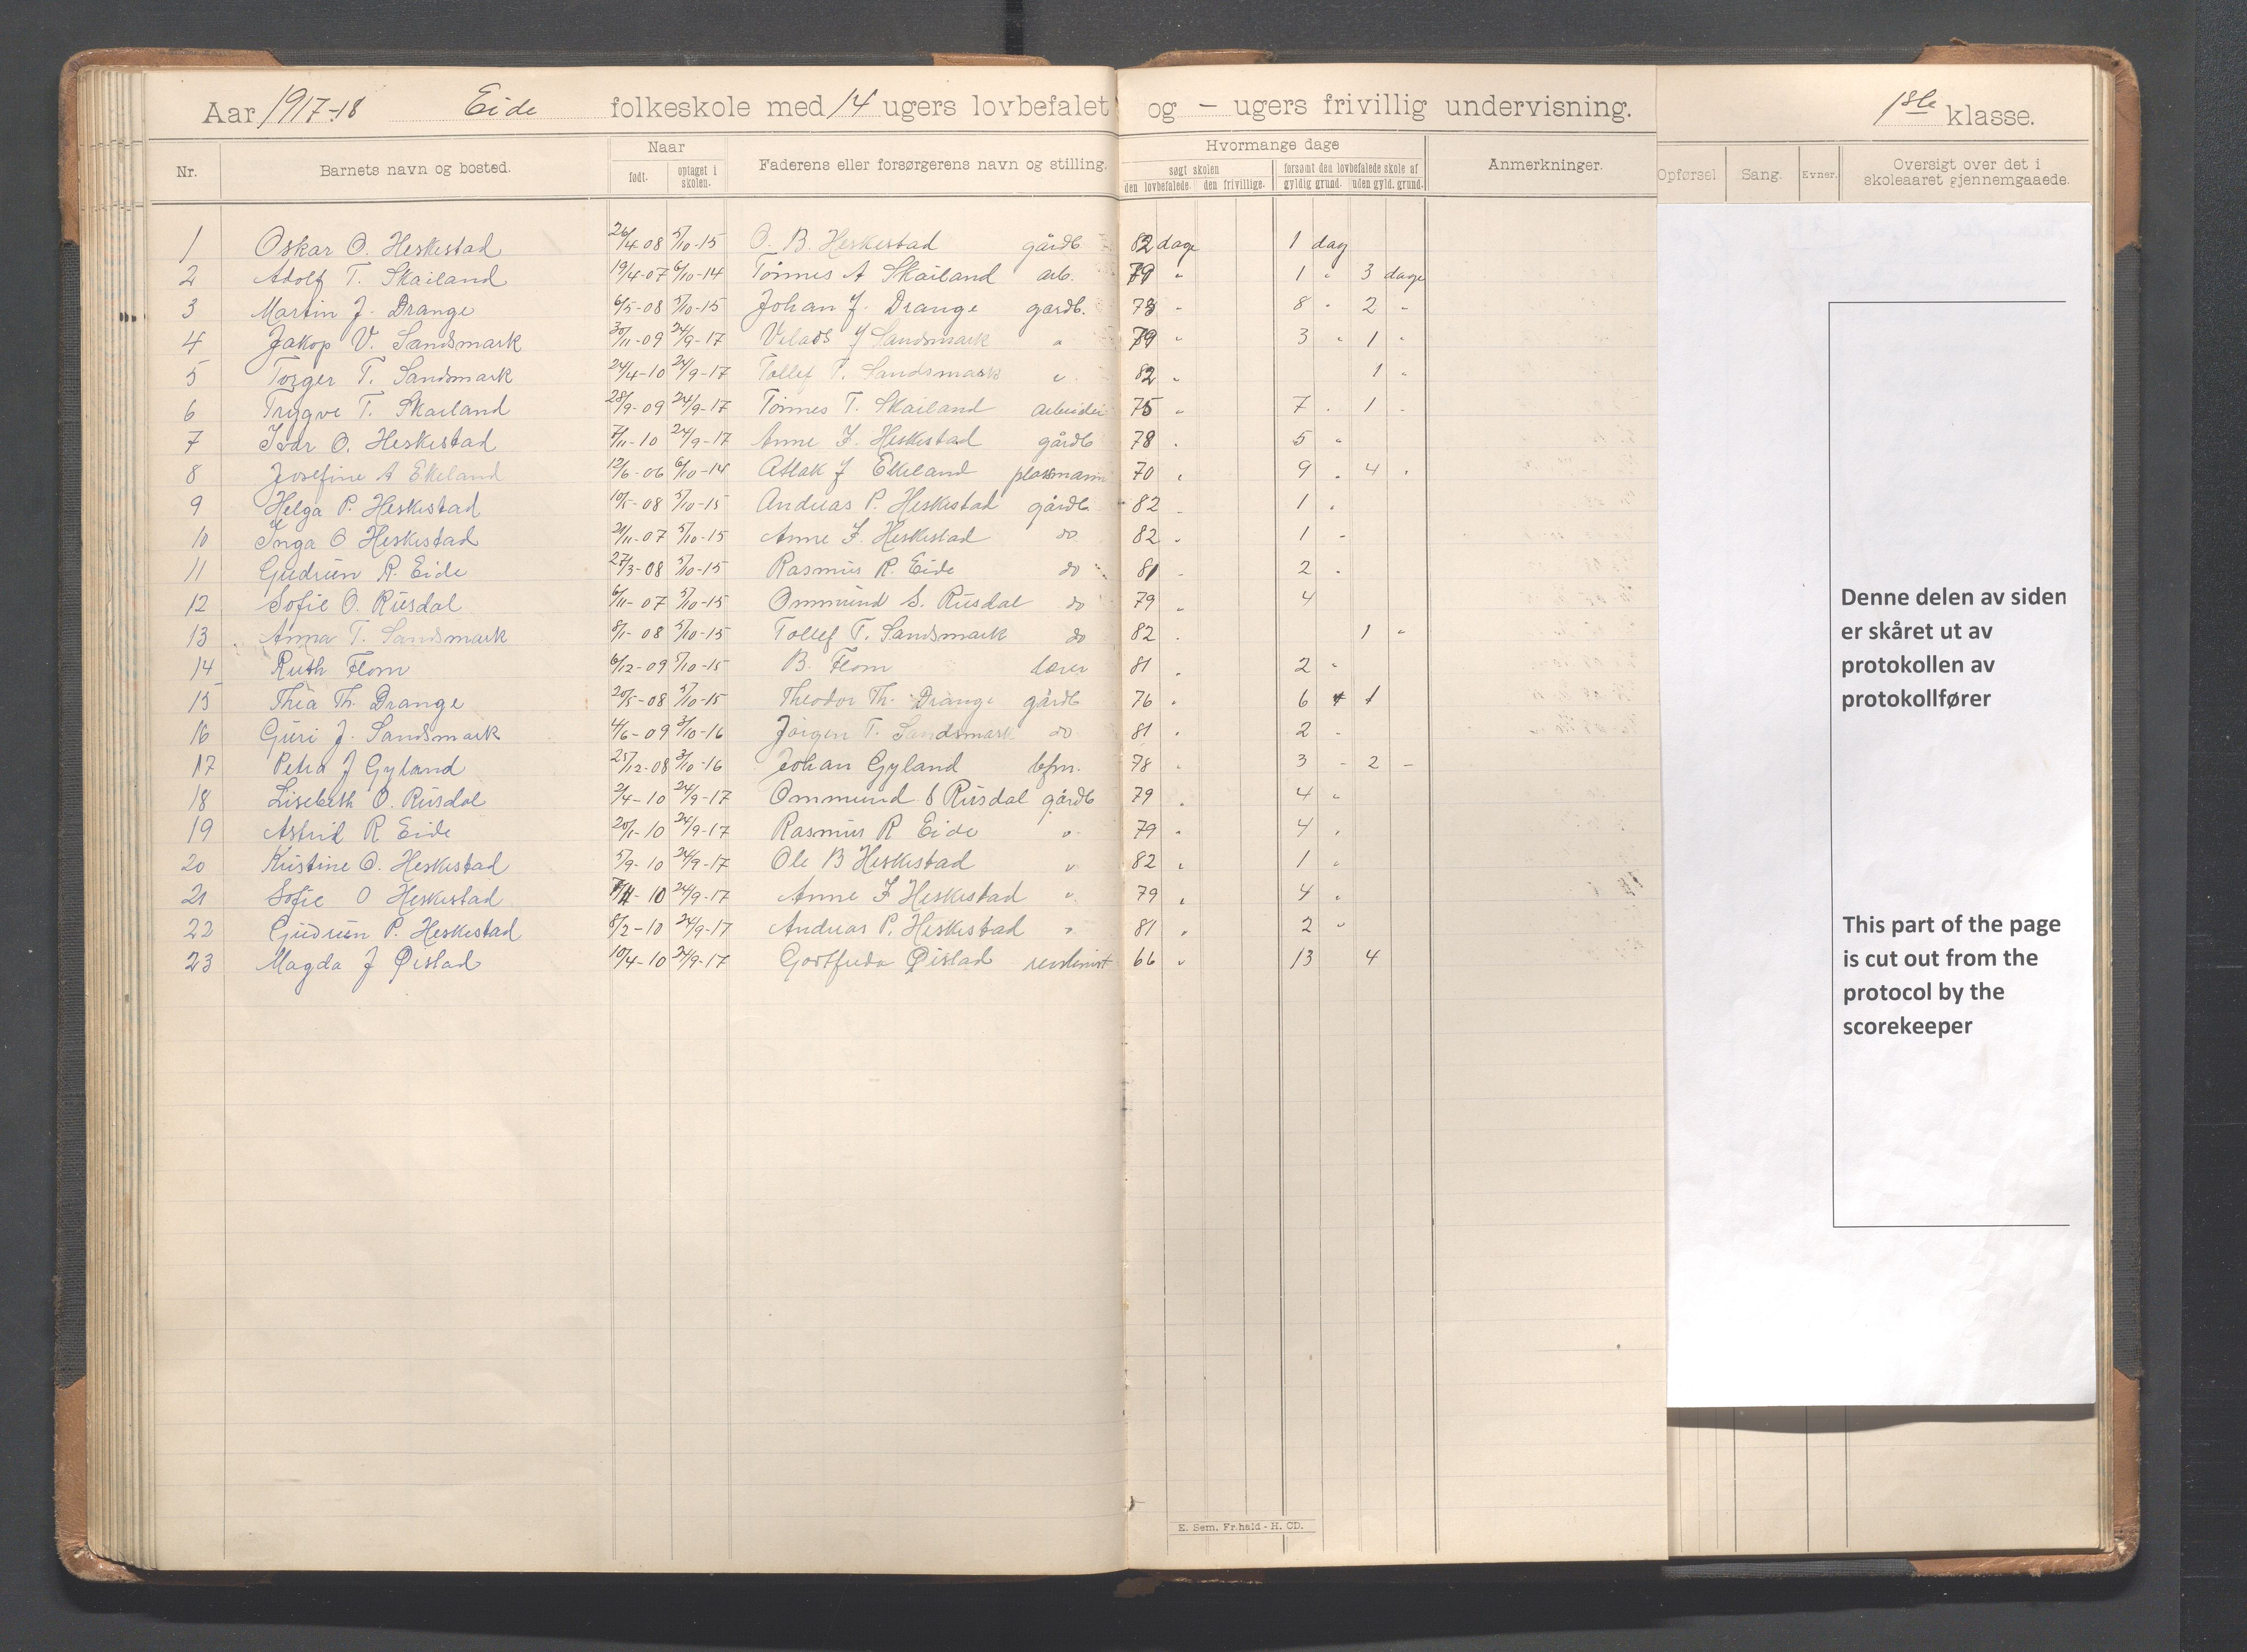 Aar 1917-18 Eide folkeskole med 14 ugers lovbefalet og - ugers frivillig undervisning. 1ste klasse.
Nr. Barnets navn og bosted. Naar født. optaget i skolen. Faderens eller forsørgerens navn og stilling. Hvormange dage søgt skolen den lovbefalede. den frivillige. forsømt den lovbefalede skole af gyldig grund. uden gyld. grund. Anmerkninger. Opførsel Sang. Evner. Oversigt over det i skoleaaret gjennemgaaede.
1 Oskar O. Heskestad 26/4-08 5/10-15 O. B. Heskestad gårdb 82 dage 1 dag
2 Adolf T. Skailand 19/4-07 6/10-14 Tönnes A Skailand arb. 79 " 1 " 3 dage
3 Martin J. Drange 6/5-08 5/10-15 Johan J. Drange gardb. 73 - 8 " 2 "
4 Jakop V. Sandsmark 30/11-09 24/9-17 Velads J Sandsmark " 79 " 3 " 1 "
5 Torger T. Sandsmark 24/4-10 24/9-17 Tollef T. Sandsmark " 82 " 1 "
6 Trygve T. Skailand 28/9-09 24/9-17 Tönnes T. Skailand arbeider 75 " 7 " 1 "
7 Ivar O. Heskestad 7/11-10 24/9-17 Anne F. Heskestad gårdb 78 " 5 "
8 Josefine A Ekeland 12/6-06 6/10-14 Atlak J Ekeland plassmann 70 " 9 " 4 "
9 Helga P. Heskestad 10/5-08 5/10-15 Andreas P. Heskestad gårdb 82 - 1 "
10 Inga O Heskestad 21/11-07 5/10-15 Anne F. Heskestad do 82 " 1 -
11 Gudrun R. Eide 27/3-08 5/10-15 Rasmus R. Eide do 81 - 2 "
12 Sofie O. Rusdal 6/11-07 5/10-15 Ommund S. Rusdal do 79 " 4
13 Anna T. Sandsmark 8/1-08 5/10-15 Tollef T. Sandsmark do 82 " 1 "
14 Ruth Flom 6/12-09 5/10-15 B. Flom lærer 81 " 2 "
15 Thea Th. Drange 20/5-08 5/10-15 Theodor Th. Drange gårdb 76 " 6 1
16 Guri J. Sandsmark 4/6-09 3/10-16 Jörgen T. Sandsmark do 81 " 2 -
17 Petra J Gyland 25/12-08 3/10-16 Johan Gyland bfm. 78 " 3 - 2 -
18 Lisebeth O. Rusdal 2/4-10 24/9-17 Ommund S Rusdal gårdb 79 " 4 "
19 Astrid R Eide 20/1-10 24/9-17 Rasmus R Eide " 79 " 4 "
20 Kristine O. Heskestad 5/9-10 24/9-17 Ole B Heskestad " 82 " 1 "
21 Sofie O Heskestad 7/11-10 24/9-17 Anne F Heskestad " 79 " 4 "
22 Gudrun P. Heskestad 8/2-10 24/9-17 Andreas P. Heskestad " 81 " 2 "
23 Magda J Øistad 10/4-10 24/9-17 Gottfreda Øistad 66 " 13 4
Denne delen av siden
er skåret ut av
protokollen av
protokollfører
This part of the page
is cut out from the
protocol by the
scorekeeper
E. Sem. Fr.hald - H. OD.